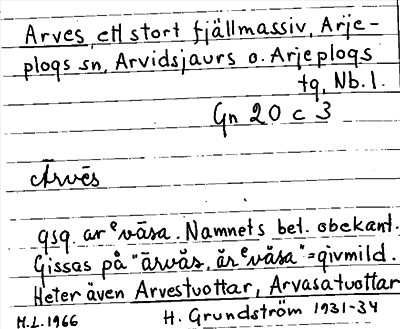 Arves, ett stort fjällmassiv, Arje-
plogs sn, Arvidsjaurs o. Arjeplogs
tg, Nb. l.
Gn 20 c 3
Ārvēs
gsg. arᵉvāsa. Namnets bet. obekant.
Gissas på "ārvăs, ărᵉvăsa" = givmild.
Heter även Arvestuottar, Arvasatuottar
M.L. 1966 H. Grundström 1931-34